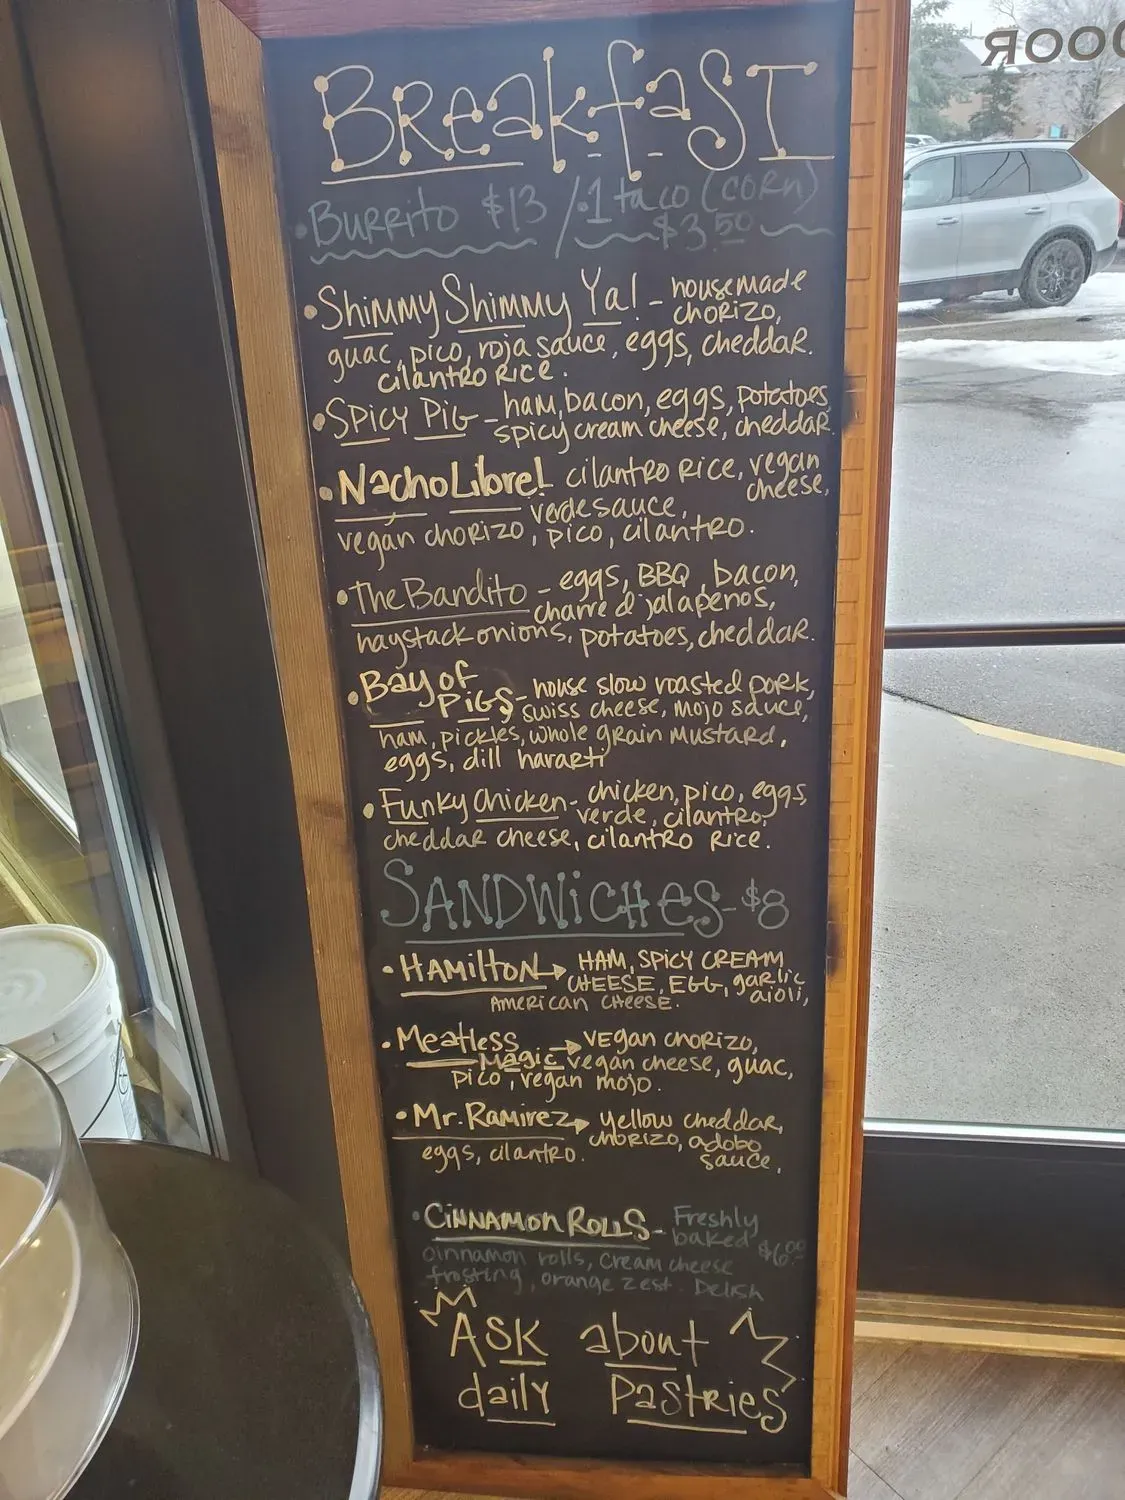 DOOR
BREakfaST
• BURRITO $13 / • 1 taco (CORN)
$3.50
• Shimmy Shimmy Ya! - housemade
chorizo,
guac, pico, roja sauce, eggs, cheddar.
cilantro Rice.
• Spicy Pig - ham, bacon, eggs, potatoes,
spicy cream cheese, cheddar.
• Nacho Libre! cilantro Rice, vegan
cheese,
verde sauce,
vegan chorizo, pico, cilantro.
• The Bandito - eggs, BBQ, bacon,
charred jalapenos,
haystack onions, potatoes, cheddar.
• Bay of
Pigs - house slow roasted pork,
swiss cheese, mojo sauce,
ham, pickles, whole grain mustard,
eggs, dill havarti
• Funky Chicken - chicken, pico, eggs,
verde, cilantro,
cheddar cheese, cilantro Rice.
SANDWiCHES - $8
• HAMILTON → HAM, SPICY CREAM
CHEESE, EGG, garlic
aioli,
AMERICAN CHEESE.
• Meatless
Magic → VEgan chorizo,
vegan cheese, guac,
pico, vegan mojo.
• Mr. Ramirez → yellow cheddar,
chorizo, adobo
sauce,
eggs, cilantro.
• CiNNAMON ROLLS - Freshly
baked $6.00
cinnamon rolls, cream cheese
frosting, orange zest. Delish
ASK about
daily Pastries